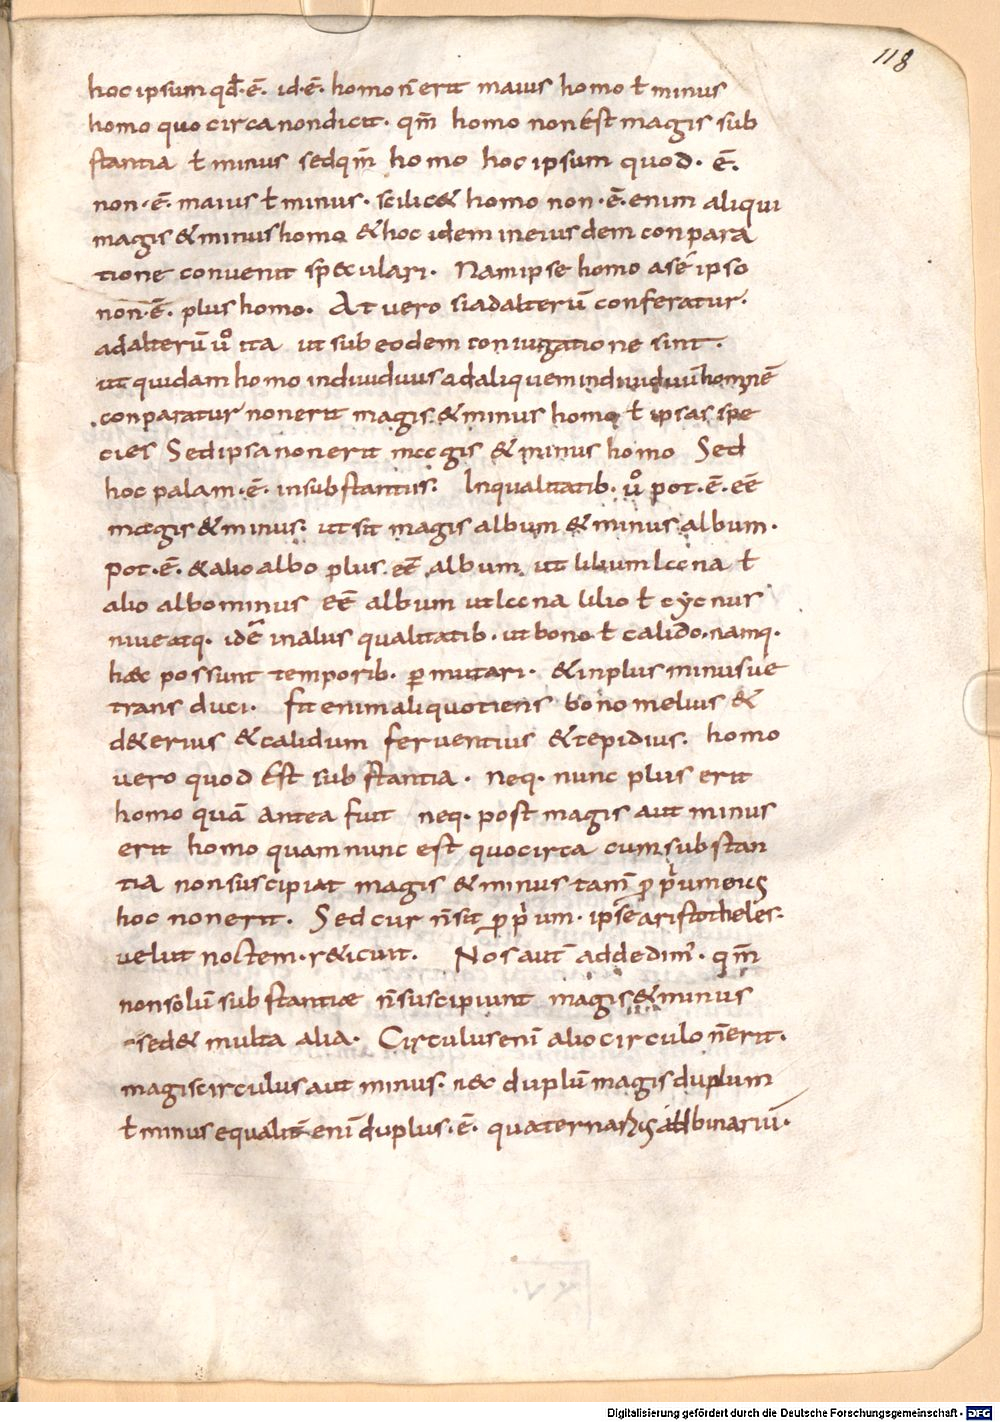 118
hoc ipsum qđ·ē· id·ē· homo ñ erit maius homo ł minus
homo quo circa non dicit· qm̄ homo non est magis sub
stantia ł minus sed qm̄ homo hoc ipsum quod· ē·
non·ē· maius ł minus· scilic& homo non·ē· enim aliqui
magis & minus homo & hoc idem in eiusdem conpara
tione conuenit speculari· Nam ipse homo a se ipso
non·ē· plus homo· At uero si ad alterū conferatur·
ad alterū uͦ ita ut sub eodem coniugatione sint·
ut quidam homo indiuiduus ad aliquem indiuiduū hominē
conparatur non erit magis & minus homo ł ipsas spe
cies Sed ipsa non erit magis & minus homo Sed
hoc palam·ē· in substantiis· In qualitatib· uͦ pot·ē· eē
magis & minus· ut sit magis album & minus album·
pot·ē· & alio albo plus eē album ut lilium lana ł
alio albo minus eē album ut lana lilio ł cycnus
niue atq· idē in aliis qualitatib· ut bono ł calido· namq·
hæc possunt temporib· ꝑmutari· & in plus minusue
trans duci· fit enim aliquotiens bono melius &
d&erius & calidum feruentius & tepidius· homo
uero quod est substantia· neq· nunc plus erit
homo quā antea fuit neq· post magis aut minus
erit homo quam nunc est quocirca cum substan
tia non suscipiat magis & minus tam̄ ꝓprium eius
hoc non erit· Sed cur ñ sit ꝓprium· ipse aristotheles·
uelut noctem· r&icuit· Nos aut̄ addedim᾽· qm̄
non solū substantiæ ñ suscipiunt magis & minus
sed & multa alia· Circulus enī alio circulo ñ erit·
magis circulus aut minus· nec duplū magis duplum
ł minus equalit̄ enī duplus·ē· quaternarius ad binariū·
Digitalisierung gefördert durch die Deutsche Forschungsgemeinschaft - DFG